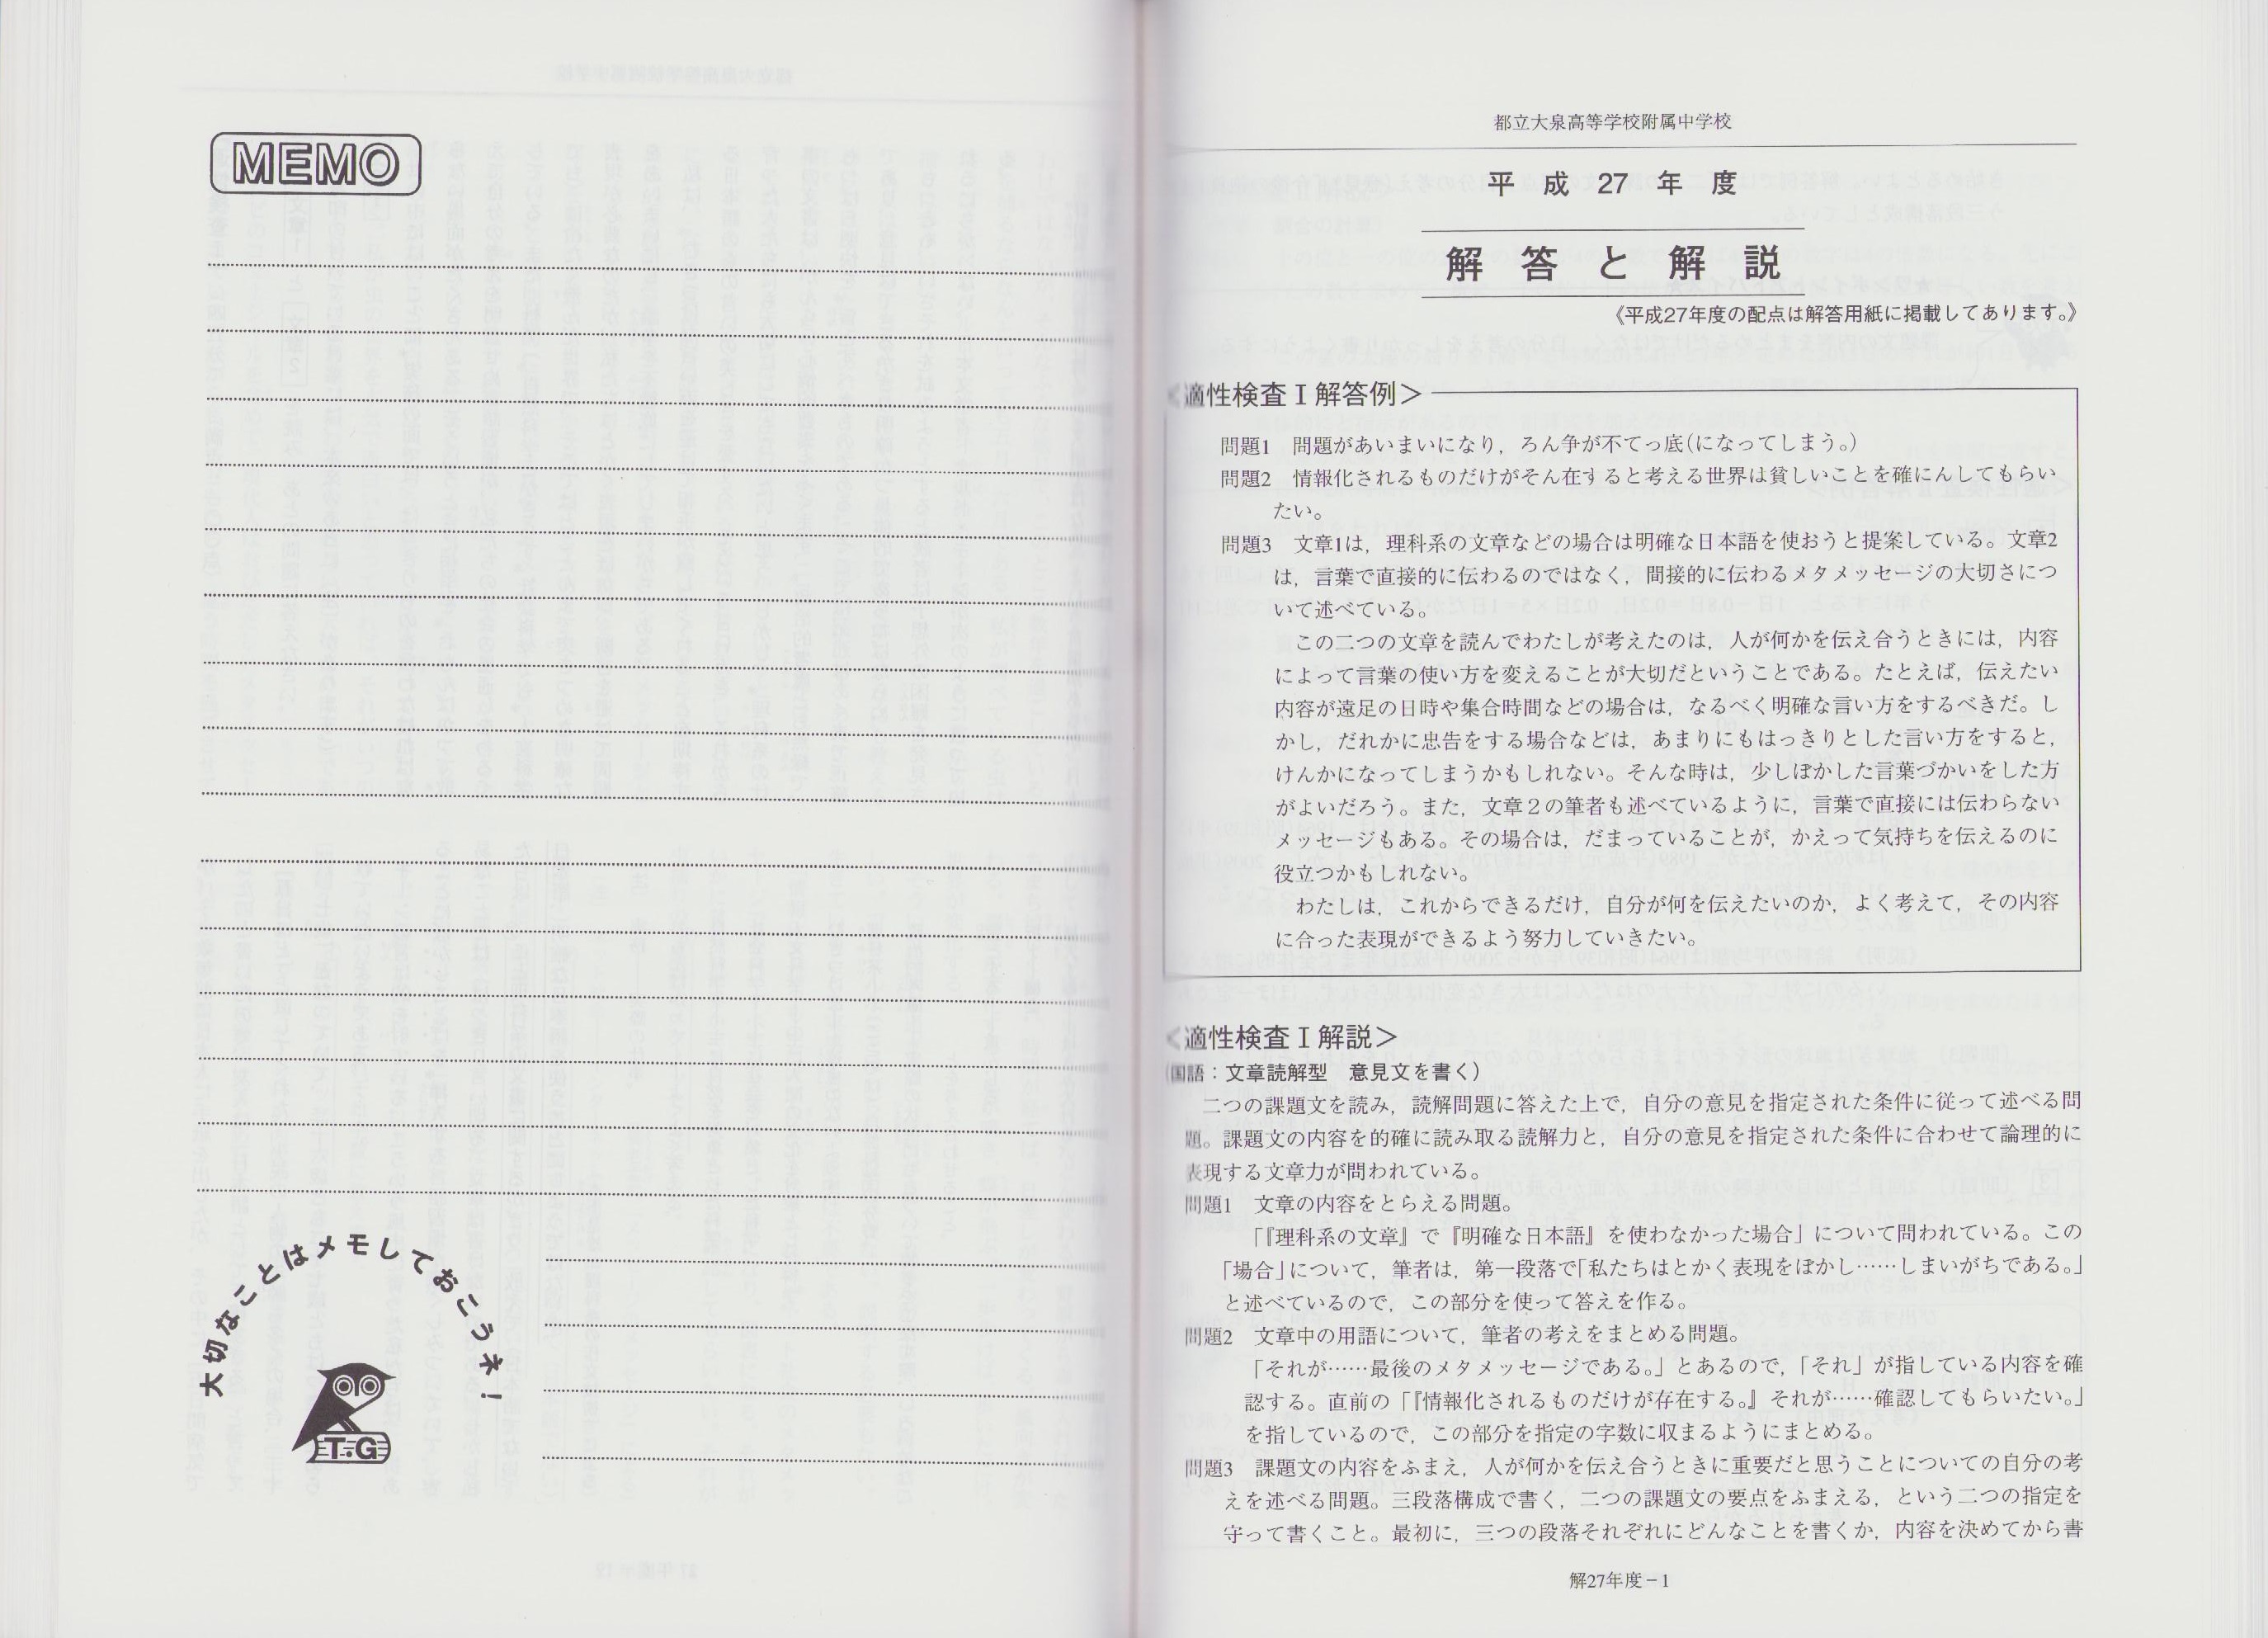 MEMO
大切なことはメモしておこうネ!
T・G
都立大泉高等学校附属中学校
平成27年度
解答と解説
《平成27年度の配点は解答用紙に掲載してあります。》
<適性検査Ⅰ解答例>
問題1 問題があいまいになり,ろん争が不てっ底(になってしまう。)
問題2 情報化されるものだけがそん在すると考える世界は貧しいことを確にんしてもらい
たい。
問題3 文章1は,理科系の文章などの場合は明確な日本語を使おうと提案している。文章2
は,言葉で直接的に伝わるのではなく,間接的に伝わるメタメッセージの大切さにつ
いて述べている。
この二つの文章を読んでわたしが考えたのは,人が何かを伝え合うときには,内容
によって言葉の使い方を変えることが大切だということである。たとえば,伝えたい
内容が遠足の日時や集合時間などの場合は,なるべく明確な言い方をするべきだ。し
かし,だれかに忠告をする場合などは,あまりにもはっきりとした言い方をすると,
けんかになってしまうかもしれない。そんな時は,少しぼかした言葉づかいをした方
がよいだろう。また,文章2の筆者も述べているように,言葉で直接には伝わらない
メッセージもある。その場合は,だまっていることが,かえって気持ちを伝えるのに
役立つかもしれない。
わたしは,これからできるだけ,自分が何を伝えたいのか,よく考えて,その内容
に合った表現ができるよう努力していきたい。
<適性検査Ⅰ解説>
(国語:文章読解型 意見文を書く)
二つの課題文を読み,読解問題に答えた上で,自分の意見を指定された条件に従って述べる問
題。課題文の内容を的確に読み取る読解力と,自分の意見を指定された条件に合わせて論理的に
表現する文章力が問われている。
問題1 文章の内容をとらえる問題。
「『理科系の文章』で『明確な日本語』を使わなかった場合」について問われている。この
「場合」について,筆者は,第一段落で「私たちはとかく表現をぼかし……しまいがちである。」
と述べているので,この部分を使って答えを作る。
問題2 文章中の用語について,筆者の考えをまとめる問題。
「それが……最後のメタメッセージである。」とあるので,「それ」が指している内容を確
認する。直前の「『情報化されるものだけが存在する。』それが……確認してもらいたい。」
を指しているので,この部分を指定の字数に収まるようにまとめる。
問題3 課題文の内容をふまえ,人が何かを伝え合うときに重要だと思うことについての自分の考
えを述べる問題。三段落構成で書く,二つの課題文の要点をふまえる,という二つの指定を
守って書くこと。最初に,三つの段落それぞれにどんなことを書くか,内容を決めてから書
解27年度-1